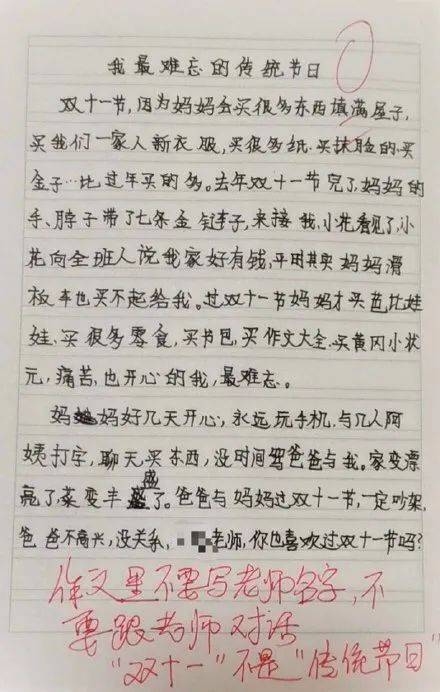 我最难忘的传统节日
双十一节,因为妈妈会买很多东西填满屋子,
买我们一家人新衣服,买很多纸、买抹脸的、买
金子…比过年买的多。去年双十一节完了,妈妈的
手、脖子带了七条金链子,来接我,小花看见了,小
花向全班人说我家好有钱,平因其实妈妈滑
板车也买不起给我。过双十一节妈妈才买芭比娃
娃、买很多零食,买书包,买作文大全、买黄冈小状
元,痛苦,也开心的我,最难忘。
妈妈好几天开心,永远玩手机,与几人阿
姨打字,聊天,买东西,没时间骂爸爸与我。家变漂
亮了,菜变丰盛了。爸爸与妈妈过双十一节,一定吵架,
爸爸不高兴,没关系,老师,你也喜欢过双十一节吗?
作文里不要写老师名字,不
要跟老师对话
"双十一"不是"传统节日"